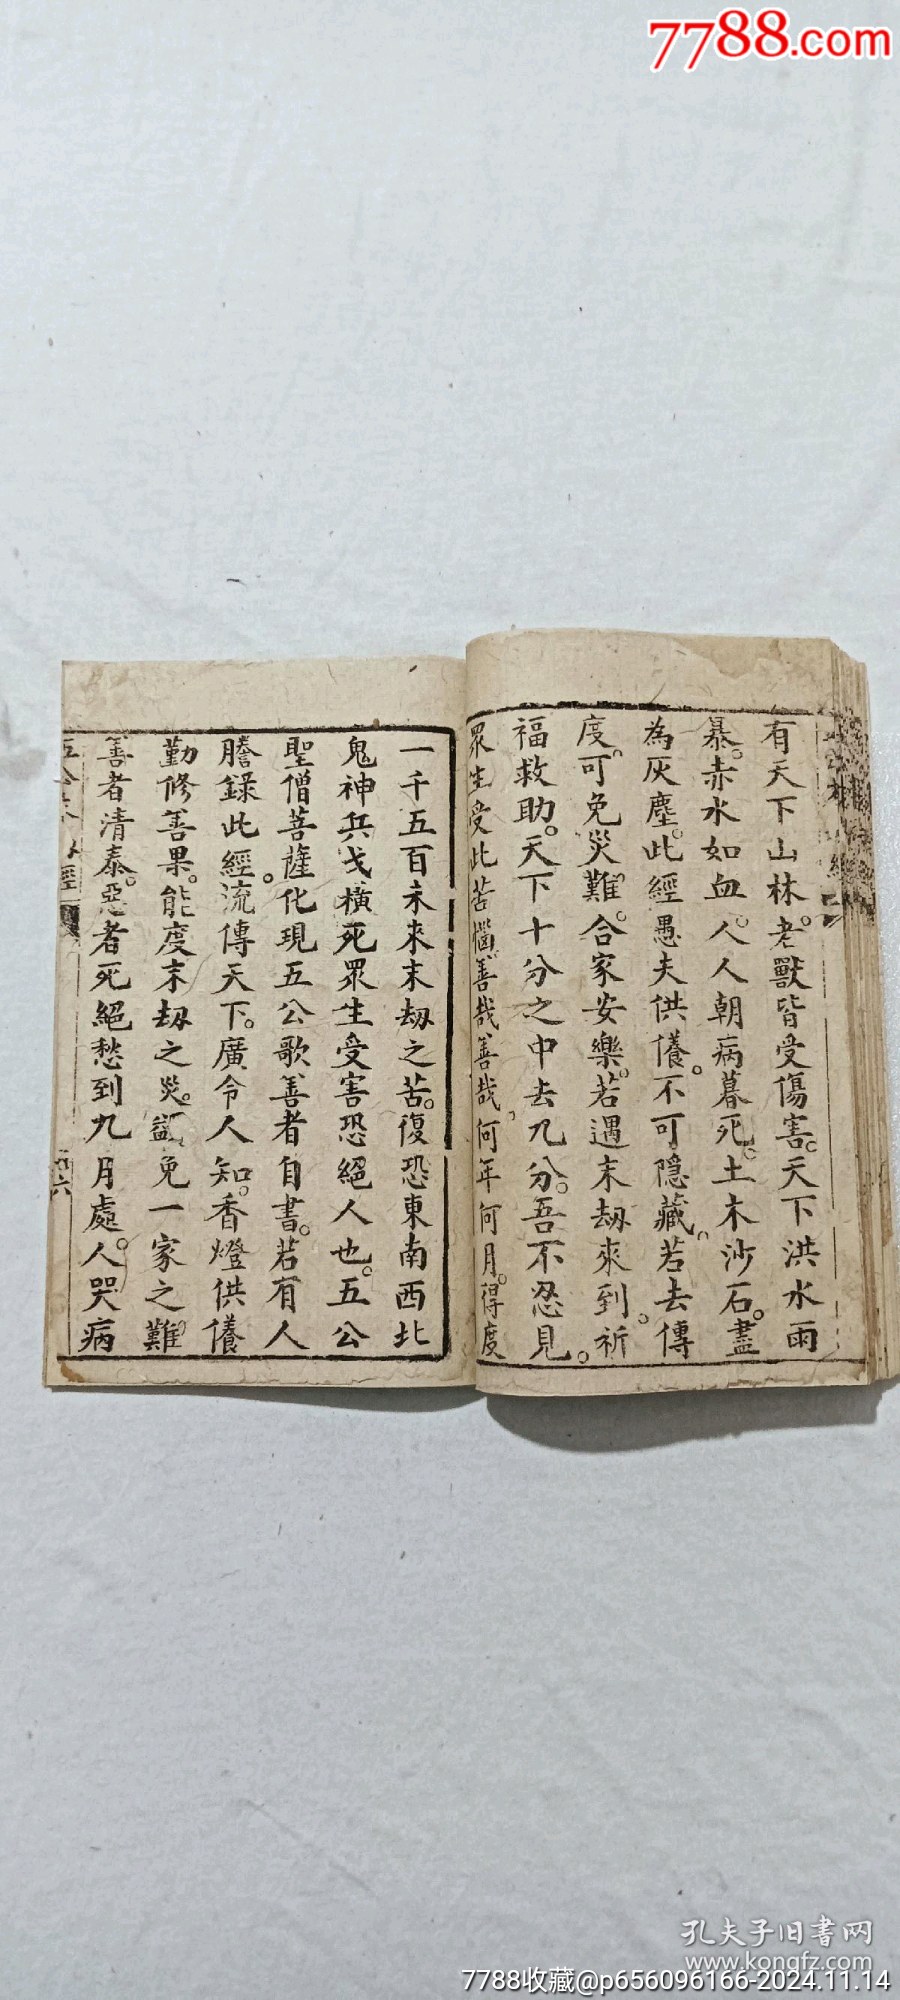 7788.com
有天下山林。老獸皆受傷害。天下洪水雨
暴。赤水如血。人人朝病暮死。土木沙石。盡
為灰塵。此經愚夫供養。不可隱藏。若去傳
度。可免災難。合家安樂。若遇末劫來到。祈
福救助。天下十分之中去九分。吾不忍見。
眾生受此苦惱。善哉善哉。何年何月。得度
一千五百未來末劫之苦。復恐東南西北
鬼神兵戈橫死眾生受害恐絕人也。五公
聖僧菩薩化現五公歌善者自書。若有人
謄錄此經。流傳天下。廣令人知。香燈供養
勤修善果。能度末劫之災。免一家之難。
善者清泰。惡者死絕愁到九月處。人哭病
經
六
孔夫子旧书网
www.kongfz.com
7788收藏@p656096166-2024.11.14